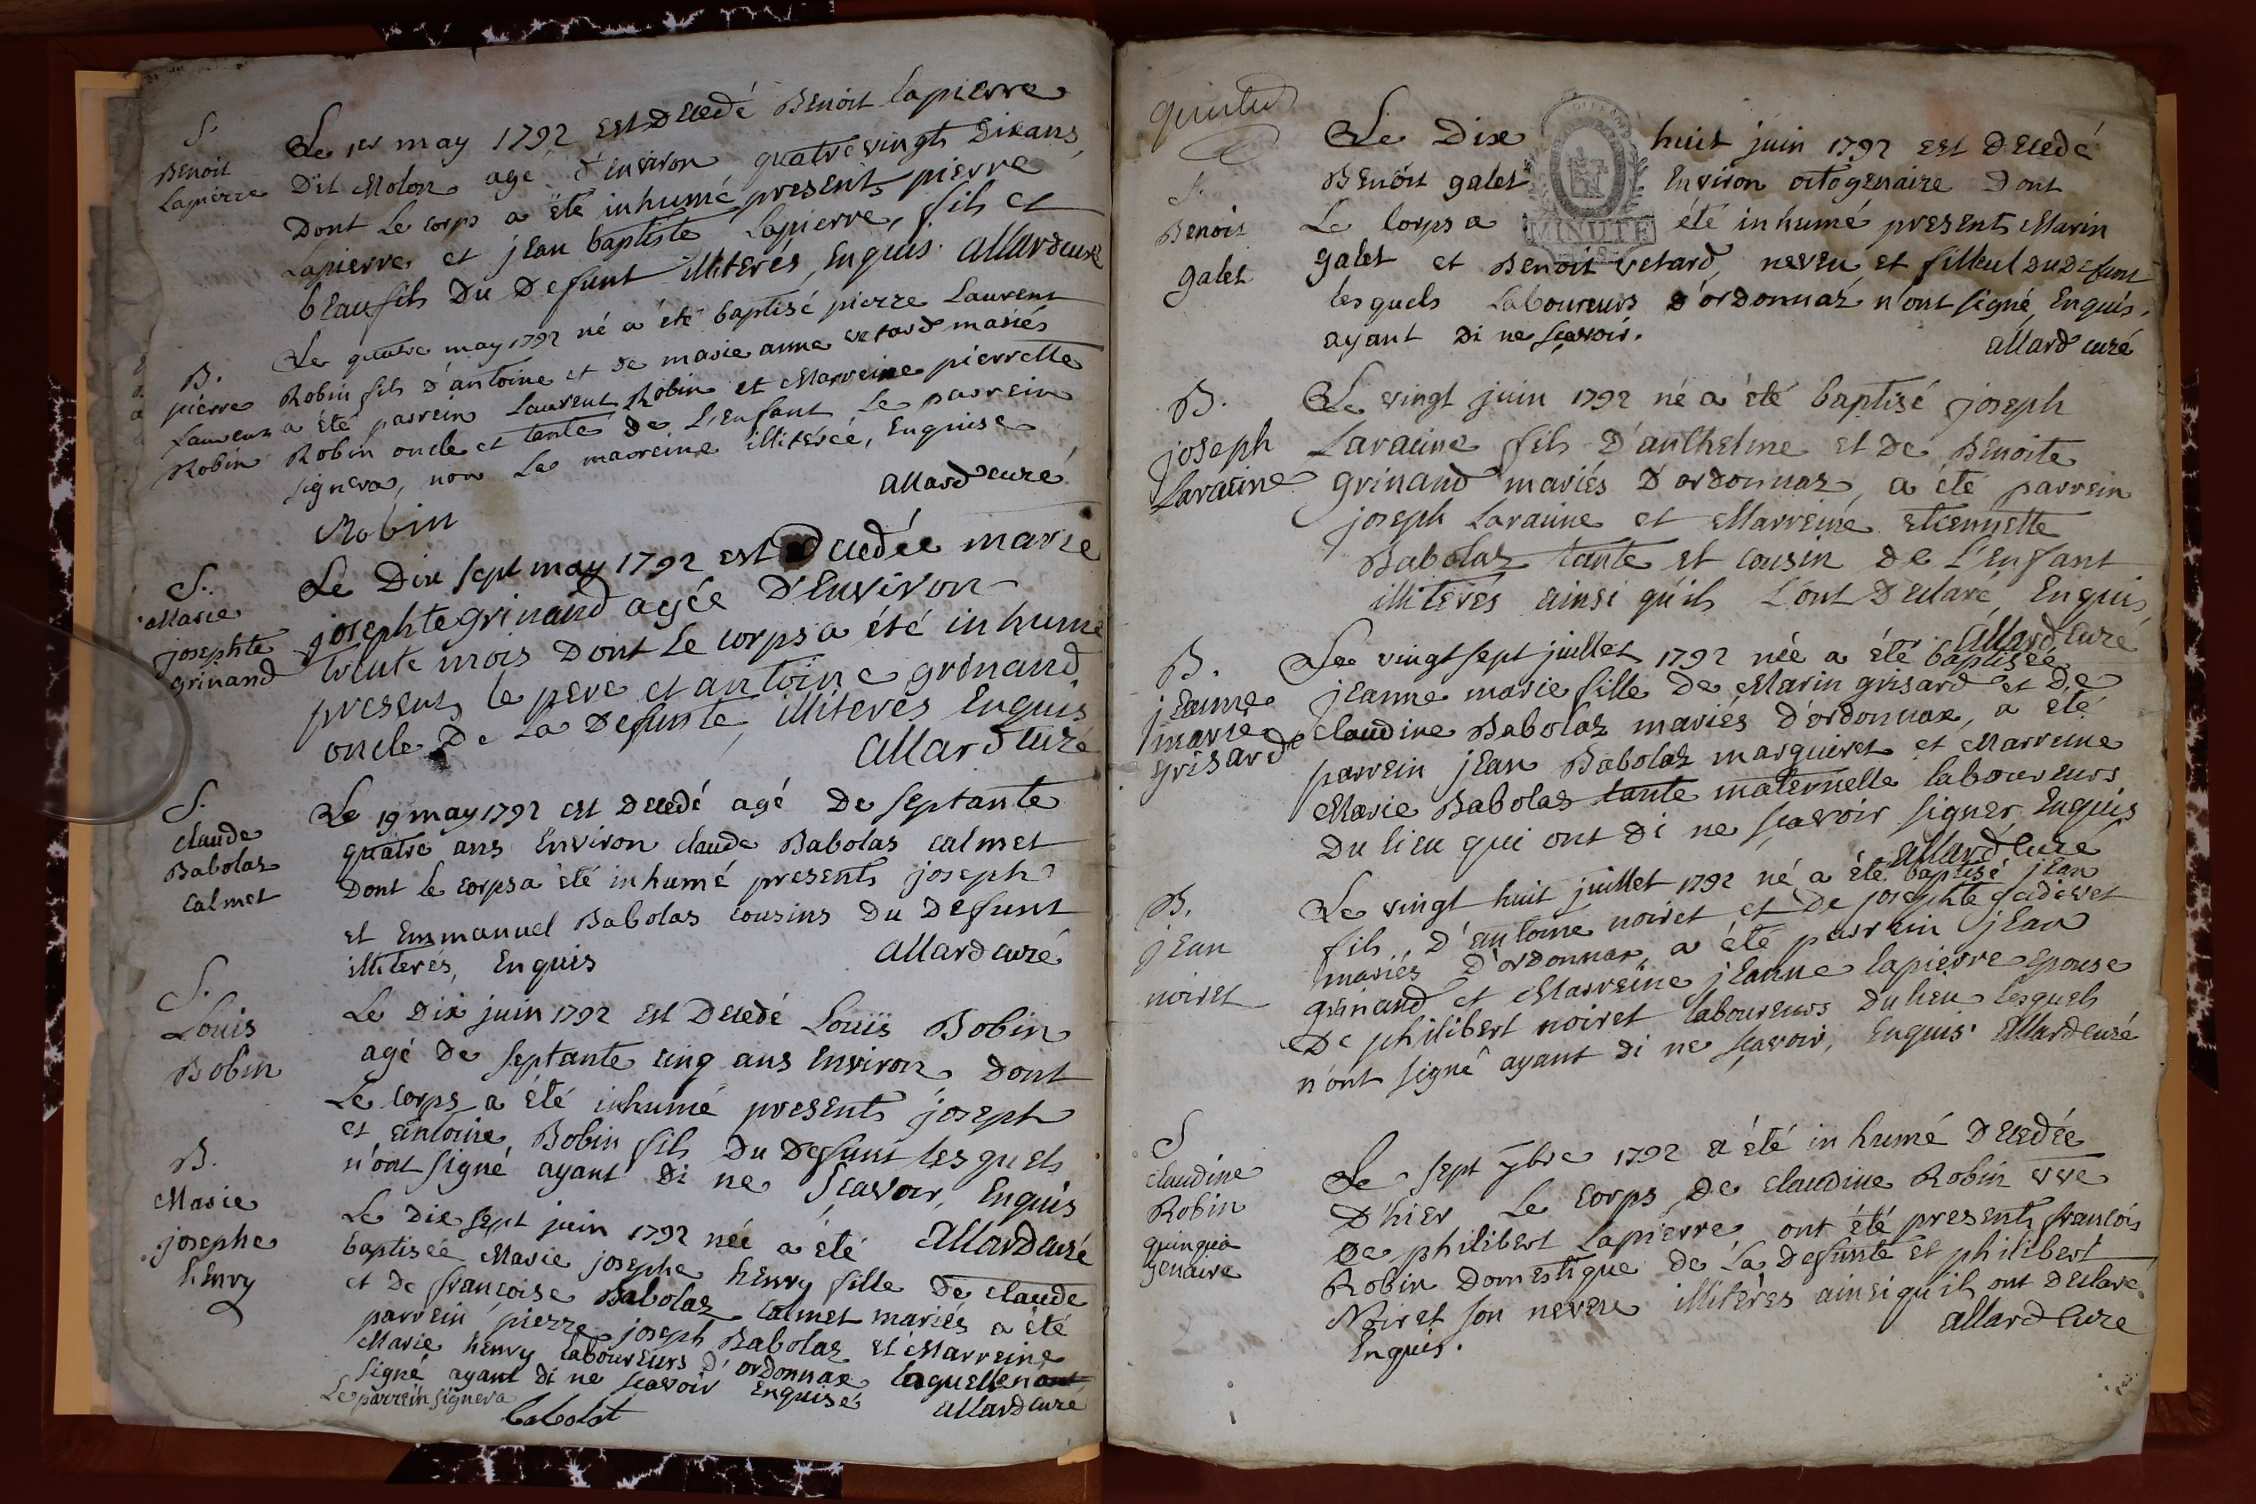 S.
Benoit
Lapierre
Le 1er may 1792 est decedé Benoit lapierre
dit Molon agé d'environ quatre vingts dix ans,
dont Le corps a été inhumé presents pierre
Lapierre et jean baptiste Lapierre, fils et
beaufils du defunt illiterés, Enquis. allard curé
B.
pierre
Laurent
Robin
Le quatre may 1792 né a été baptisé pierre Laurent
Robin fils d'antoine et de marie anne vetard mariés
a été parrein Laurent Robin et Marreine pierrette
Robin oncle et tante de L'enfant Le parrein
signera, non La marreine illiterée, Enquise
allard curé
Robin
S.
Marie
josephte
grinand
Le Dix sept may 1792 est Decedée marie
josephte grinand agée D'Environ
trente mois Dont Le corps a été inhumé
presents le pere et antoine grinand
oncle De La Defunte, illiterés Enquis
allard curé
S.
claude
Babolaz
calmet
Le 19 may 1792 est decedé agé De septante
quatre ans Environ claude Babolas calmet
Dont le corps a été inhumé presents joseph
et Emmanuel Babolas cousins du Defunt
illiterés, Enquis
allard curé
S.
Louis
Bobin
Le Dix juin 1792 est Decedé Louïs Bobin
agé De septante cinq ans environ Dont
Le corps a été inhumé presents joseph
et antoine Bobin fils Du Defunt lesquels
n'ont signé ayant di ne sçavoir, Enquis
allard curé
B.
Marie
josephe
henry
Le Dix sept juin 1792 née a été
baptisée Marie josephe henry fille De claude
et de françoise Babolaz calmet mariés a été
parrein pierre joseph Babolaz et Marreine
Marie henry laboureurs d'ordonnax laquelle n'ont
signé ayant di ne sçavoir Enquise
Le parrein signera
allard curé
babolat
S.
Benoit
galet
Le Dix huit juin 1792 est Decedé
MINUTE
Benoit galet Environ octogenaire Dont
Le Corps a été inhumé presents Marin
galet et Benoit vetard, neveu et filleul du defunt
lesquels Laboureurs d'ordonnaz n'ont signé, Enquis,
ayant di ne sçavoir.
allard curé
B.
joseph
Laraiine
Le vingt juin 1792 né a été baptisé joseph
Laraiine fils d'anthelme et De Benoite
grinand mariés d'ordonnaz, a été parrein
joseph Laraiine et Marreine etiennette
Babolaz tante et cousin de L'enfant
illiterés ainsi qu'ils L'ont Declaré Enquis
allard curé
B.
jeanne
marie
grisard
Le vingt sept juillet 1792 née a été baptisée
jeanne marie fille De Marin grisard et De
claudine Babolaz mariés d'ordonnax, a été
parrein jean Babolaz marguiret et Marreine
Marie Babolaz tante maternelle laboureurs
Du lieu qui ont di ne sçavoir signer Enquis
allard curé
B.
jean
noiret
Le vingt huit juillet 1792 né a été baptisé jean
fils, d'antoine noiret et De josephte
mariés d'ordonnax, a été parrein jean
grinand et Marreine jeanne lapierre epouse
De philibert noiret laboureurs du lieu lesquels
n'ont signé ayant di ne sçavoir, Enquis allard curé
S
claudine
Robin
quinqua
genaire
Le sept 7bre 1792 a été inhumé Decedée
D'hier Le corps de claudine Robin vve
de philibert Lapierre, ont été presents françois
Robin Domestique de La Defunte et philibert
Noiret son neveu illiterés ainsi qu'ils ont declaré
Enquis.
allard curé